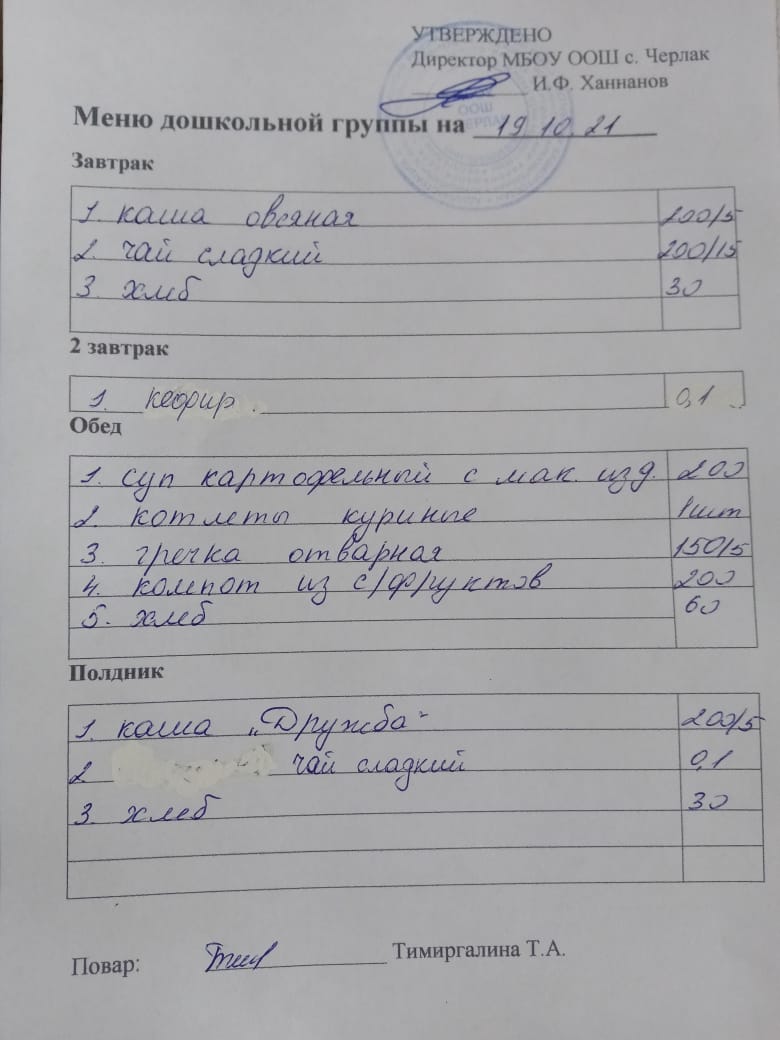 УТВЕРЖДЕНО
Директор МБОУ ООШ с. Черлак
И.Ф. Ханнанов
ООШ
Меню дошкольной группы на 19.10.21
Завтрак
1. каша овсяная 200/5
2. чай сладкий 200/15
3. хлеб 30
2 завтрак
1. кефир. 0,1
Обед
1. суп картофельный с мак. изд. 200
2. котлеты куриные 1шт
3. гречка отварная 150/5
4. компот из с/фруктов 200
5. хлеб 60
Полдник
1. каша „Дружба" 200/5
2. чай сладкий 0,1
3. хлеб 30
Повар: Тимиргалина Т.А.